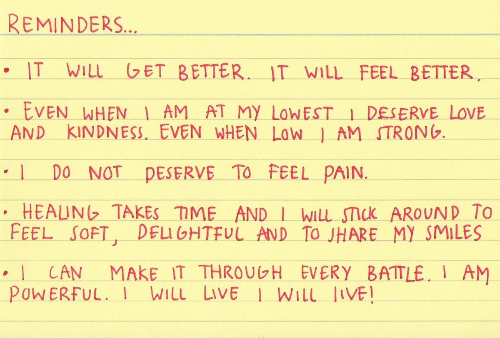 REMINDERS...
• IT WILL GET BETTER. IT WILL FEEL BETTER.
• EVEN WHEN I AM AT MY LOWEST I DESERVE LOVE
AND KINDNESS. EVEN WHEN LOW I AM STRONG.
• I DO NOT DESERVE TO FEEL PAIN.
• HEALING TAKES TIME AND I WILL STICK AROUND TO
FEEL SOFT, DELIGHTFUL AND TO SHARE MY SMILES
• I CAN MAKE IT THROUGH EVERY BATTLE. I AM
POWERFUL. I WILL LIVE I WILL LIVE!